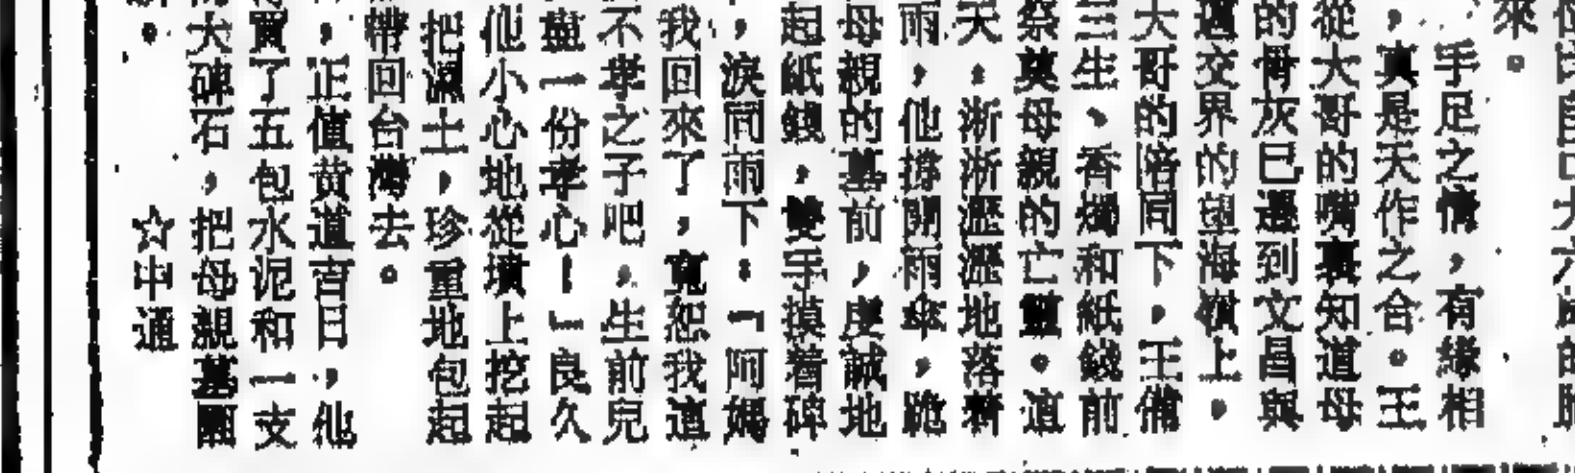 來。
手足之情，有緣相
，真是天作之合。王
從大哥的嘴裏知道母
的骨灰已遷到文昌與
邁交界的望海嶺上。
大哥的陪同下，王備
三生、香燭和紙錢前
祭奠母親的亡靈。這
天，淅淅瀝瀝地落着
雨，他撐開雨傘，跪
母親的墓前，虔誠地
起紙錢，雙手摸着碑
，淚同雨下：「阿媽
我回來了，寬恕我這
不孝之子吧，生前兒
盡一份孝心！」良久
他小心地從墳上挖起
把濕土，珍重地包起
帶回台灣去。
，正值黄道吉日，他
買了五包水泥和一支
大碑石，把母親墓圈
☆中通